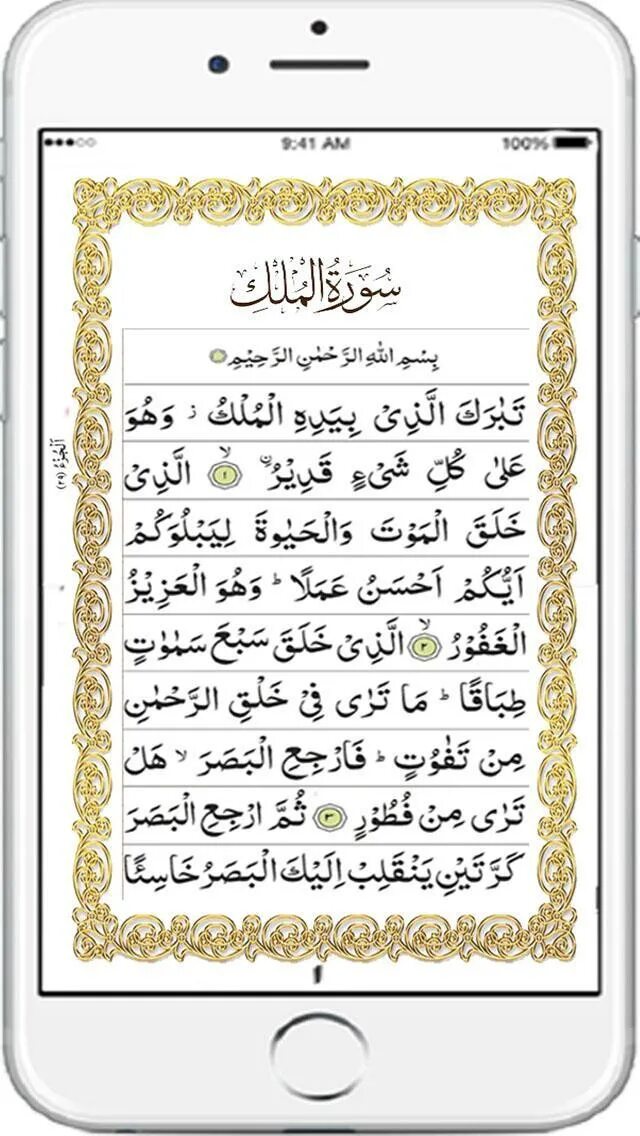 9:41 AM 100%
سُوْرَةُ الْمُلْكِ
بِسْمِ اللهِ الرَّحْمٰنِ الرَّحِيْمِ
تَبٰرَكَ الَّذِیْ بِيَدِهِ الْمُلْكُ ز وَهُوَ
عَلٰی كُلِّ شَیْءٍ قَدِيْرُ ۨ ۙ ١ الَّذِیْ
خَلَقَ الْمَوْتَ وَالْحَيٰوةَ لِيَبْلُوَكُمْ
اَيُّكُمْ اَحْسَنُ عَمَلًا ؕ وَهُوَ الْعَزِيْزُ
الْغَفُوْرُ ۙ ٢ الَّذِیْ خَلَقَ سَبْعَ سَمٰوٰتٍ
طِبَاقًا ؕ مَا تَرٰی فِیْ خَلْقِ الرَّحْمٰنِ
مِنْ تَفٰوُتٍ ؕ فَارْجِعِ الْبَصَرَ ۙ هَلْ
تَرٰی مِنْ فُطُوْرٍ ٣ ثُمَّ ارْجِعِ الْبَصَرَ
كَرَّتَيْنِ يَنْقَلِبْ اِلَيْكَ الْبَصَرُ خَاسِئًا
اَلْجُزْءُ (٢٩)
١